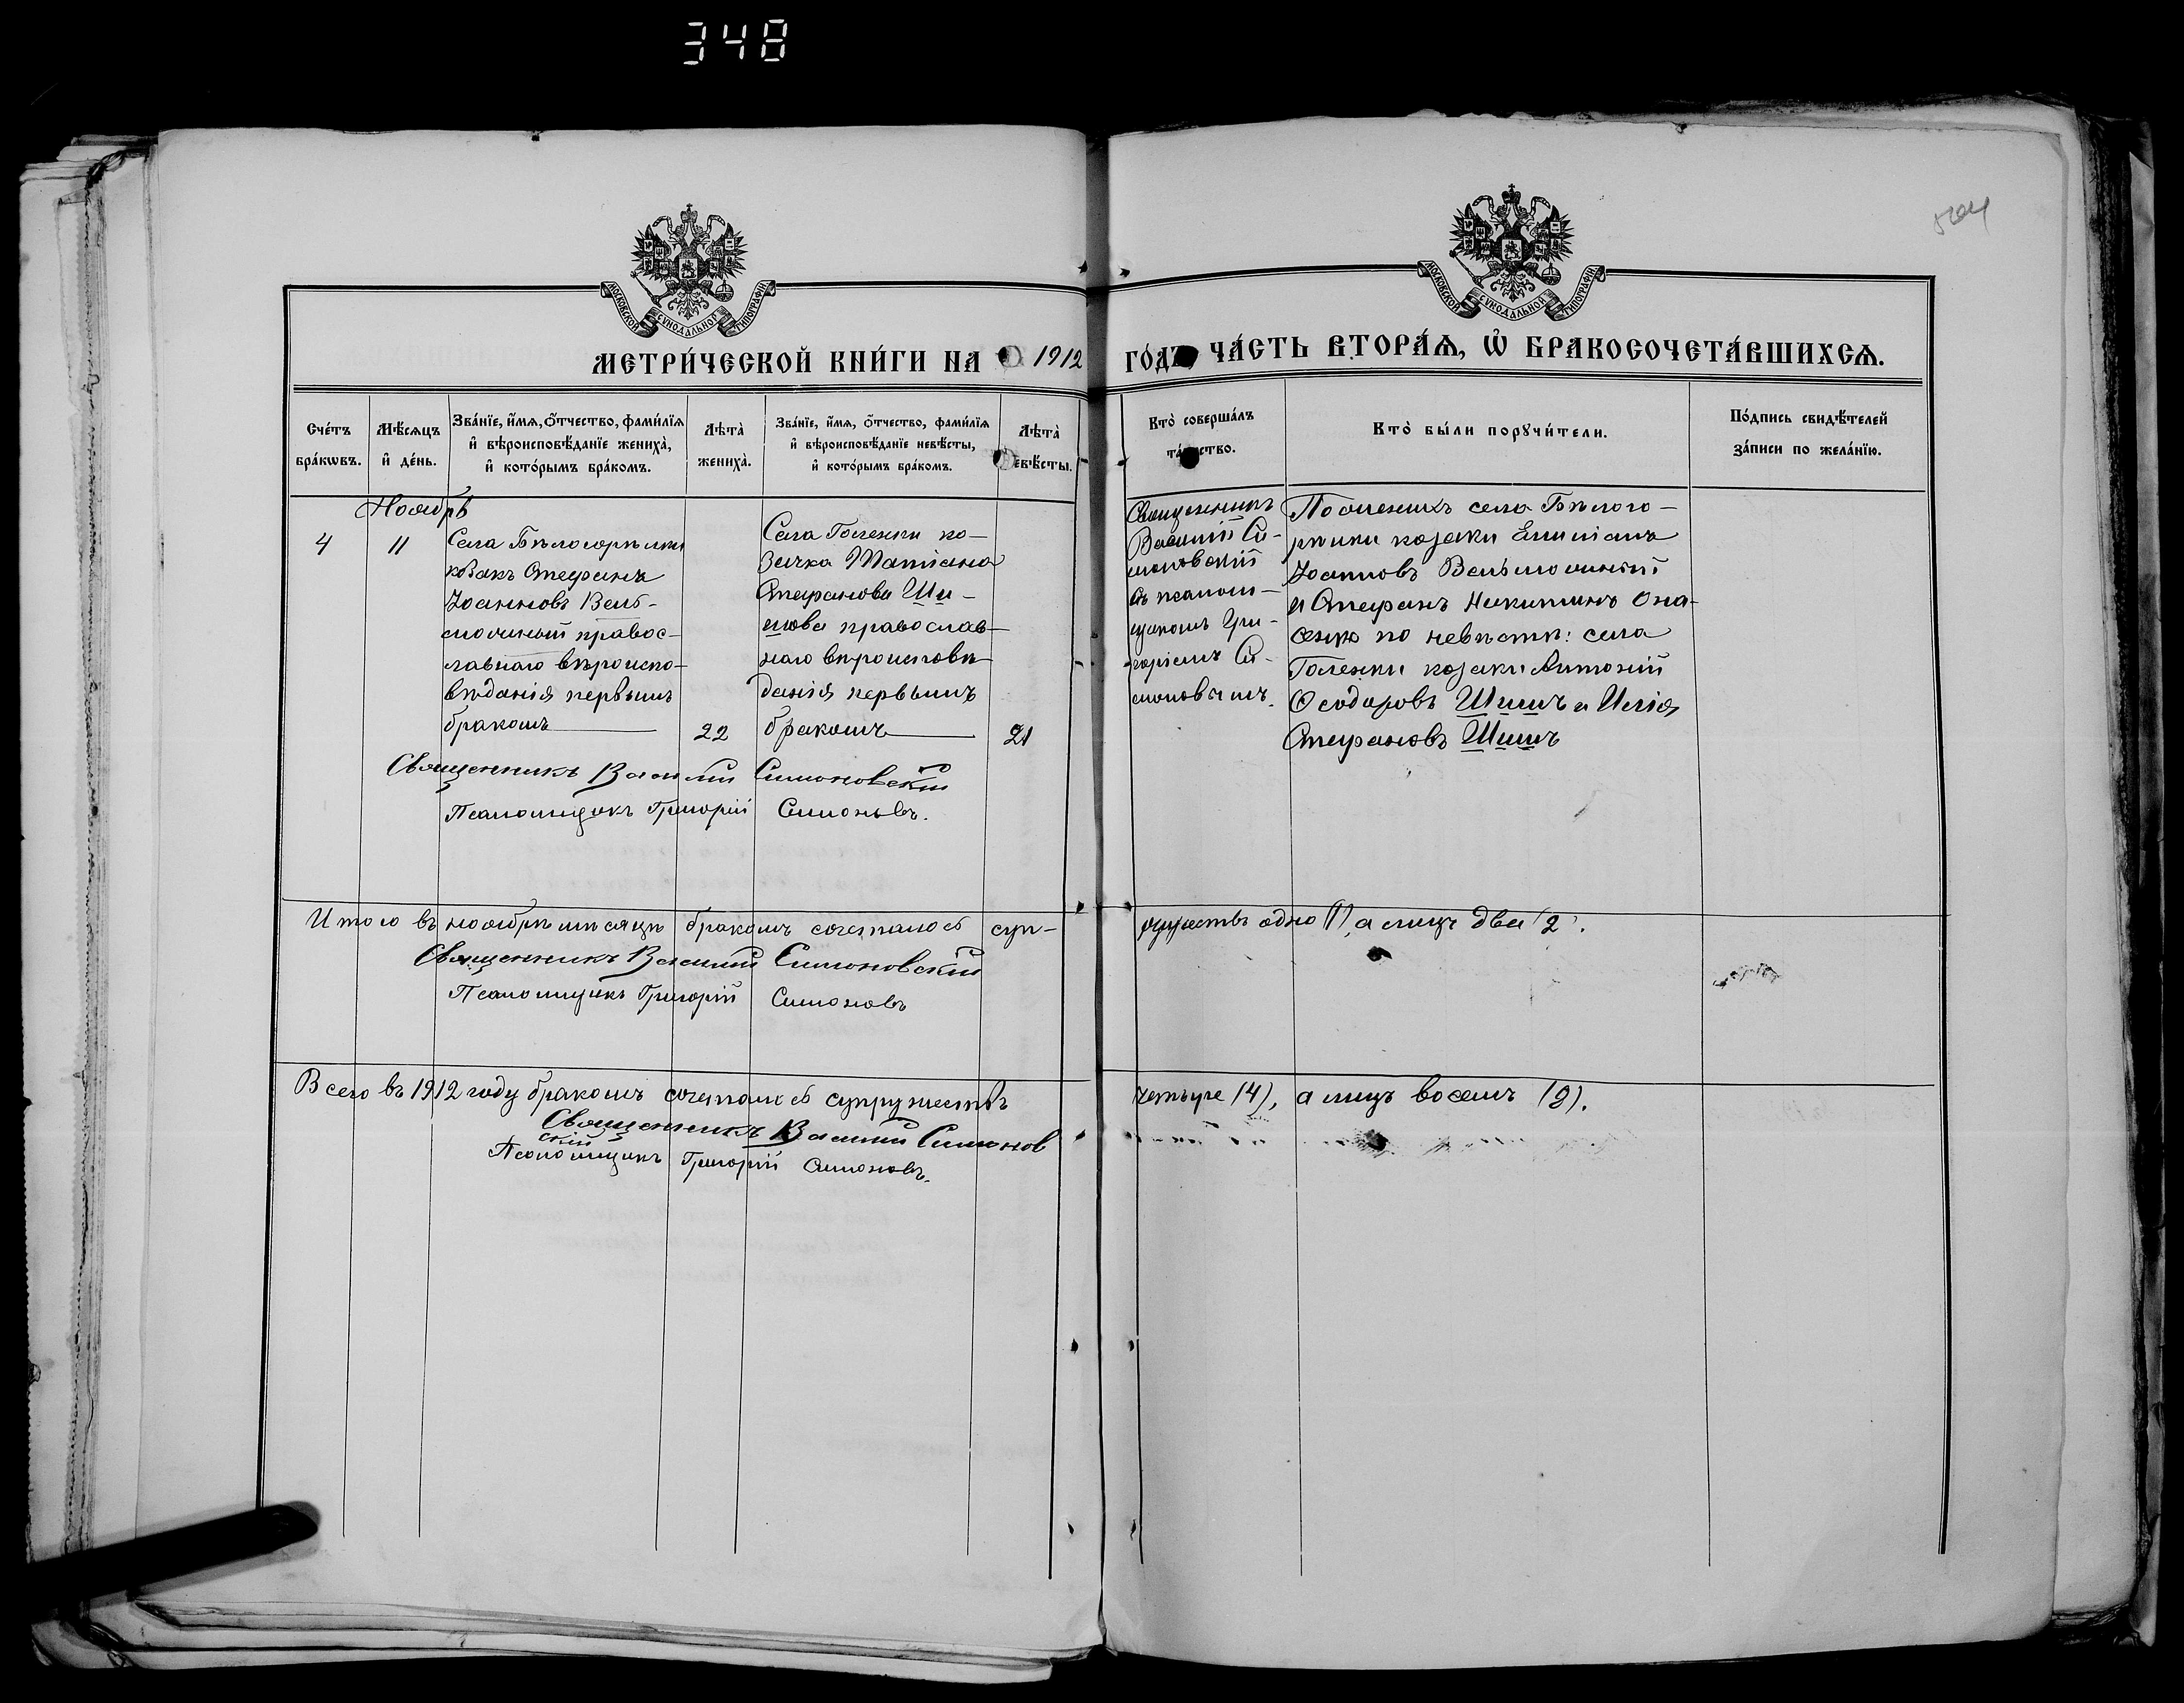 348
504
МОСКОВСКОЙ СѴНОДАЛЬНОЙ ТИПОГРАФІИ
МОСКОВСКОЙ СѴНОДАЛЬНОЙ ТИПОГРАФІИ
МЕТРИ́ЧЕСКОЙ КНИ́ГИ НА 1912 ГО́ДЪ ЧА́СТЬ ВТОРА́Ѧ, Ѡ҆ БРАКОСОЧЕТА́ВШИХСѦ.
Сче́тъ
бра́кѡвъ.
Мѣ́сяцъ
и҆ де́нь.
Зва́нїе, и҆́мѧ, ѻ҆́тчество, фами́лїѧ
и҆ вѣроисповѣ́данїе жениха̀,
и҆ кото́рымъ бра́комъ.
Лѣ́та̀
жениха̀.
Зва́нїе, и҆́мѧ, ѻ҆́тчество, фами́лїѧ
и҆ вѣроисповѣ́данїе невѣ́сты,
и҆ кото́рымъ бра́комъ.
Лѣ́та̀
евѣ́сты.
Кто̀ соверша́лъ
та́ ство.
Кто̀ бы́ли порꙋчи́тели.
По́дпись свидѣ́телей
за́писи по жела́нїю.
Ноябрь
4
11
Села Бѣлогорѣлки
козакъ Стефанъ
Іоанновъ Вель-
можный правос-
лавнаго вѣроиспо-
вѣданія первымъ
бракомъ
22
Села Голенки ко-
зачка Татіана
Стефанова Ши-
шова православ-
наго вѣроисповѣ
данія первымъ
бракомъ
21
Священникъ
Василій Си-
моновскій
съ псаломщ-
щикомъ Гри-
горіемъ Си-
моновымъ.
По женихѣ села Бѣлого-
рѣлки козаки Емиліанъ
Іоанновъ Вельможный
и Стефанъ Никитинъ Она-
сенко по невѣстѣ: села
Голенки козаки Антоній
Ѳеодоровъ Шишъ и Илія
Стефановъ Шишъ
Священникъ Василій Симоновскій
Псаломщикъ Григорій Симоновъ.
Итого въ ноябрѣ мѣсяцѣ бракомъ сочеталось суп-
ружествъ одно (1), а лицъ два (2).
Священникъ Василій Симоновскій
Псаломщикъ Григорій Симоновъ
Всего въ 1912 году бракомъ сочеталось супружествъ
четыре (4), а лицъ восемь (8).
Священникъ Василій Симонов
скій
Псаломщикъ Григорій Симоновъ.